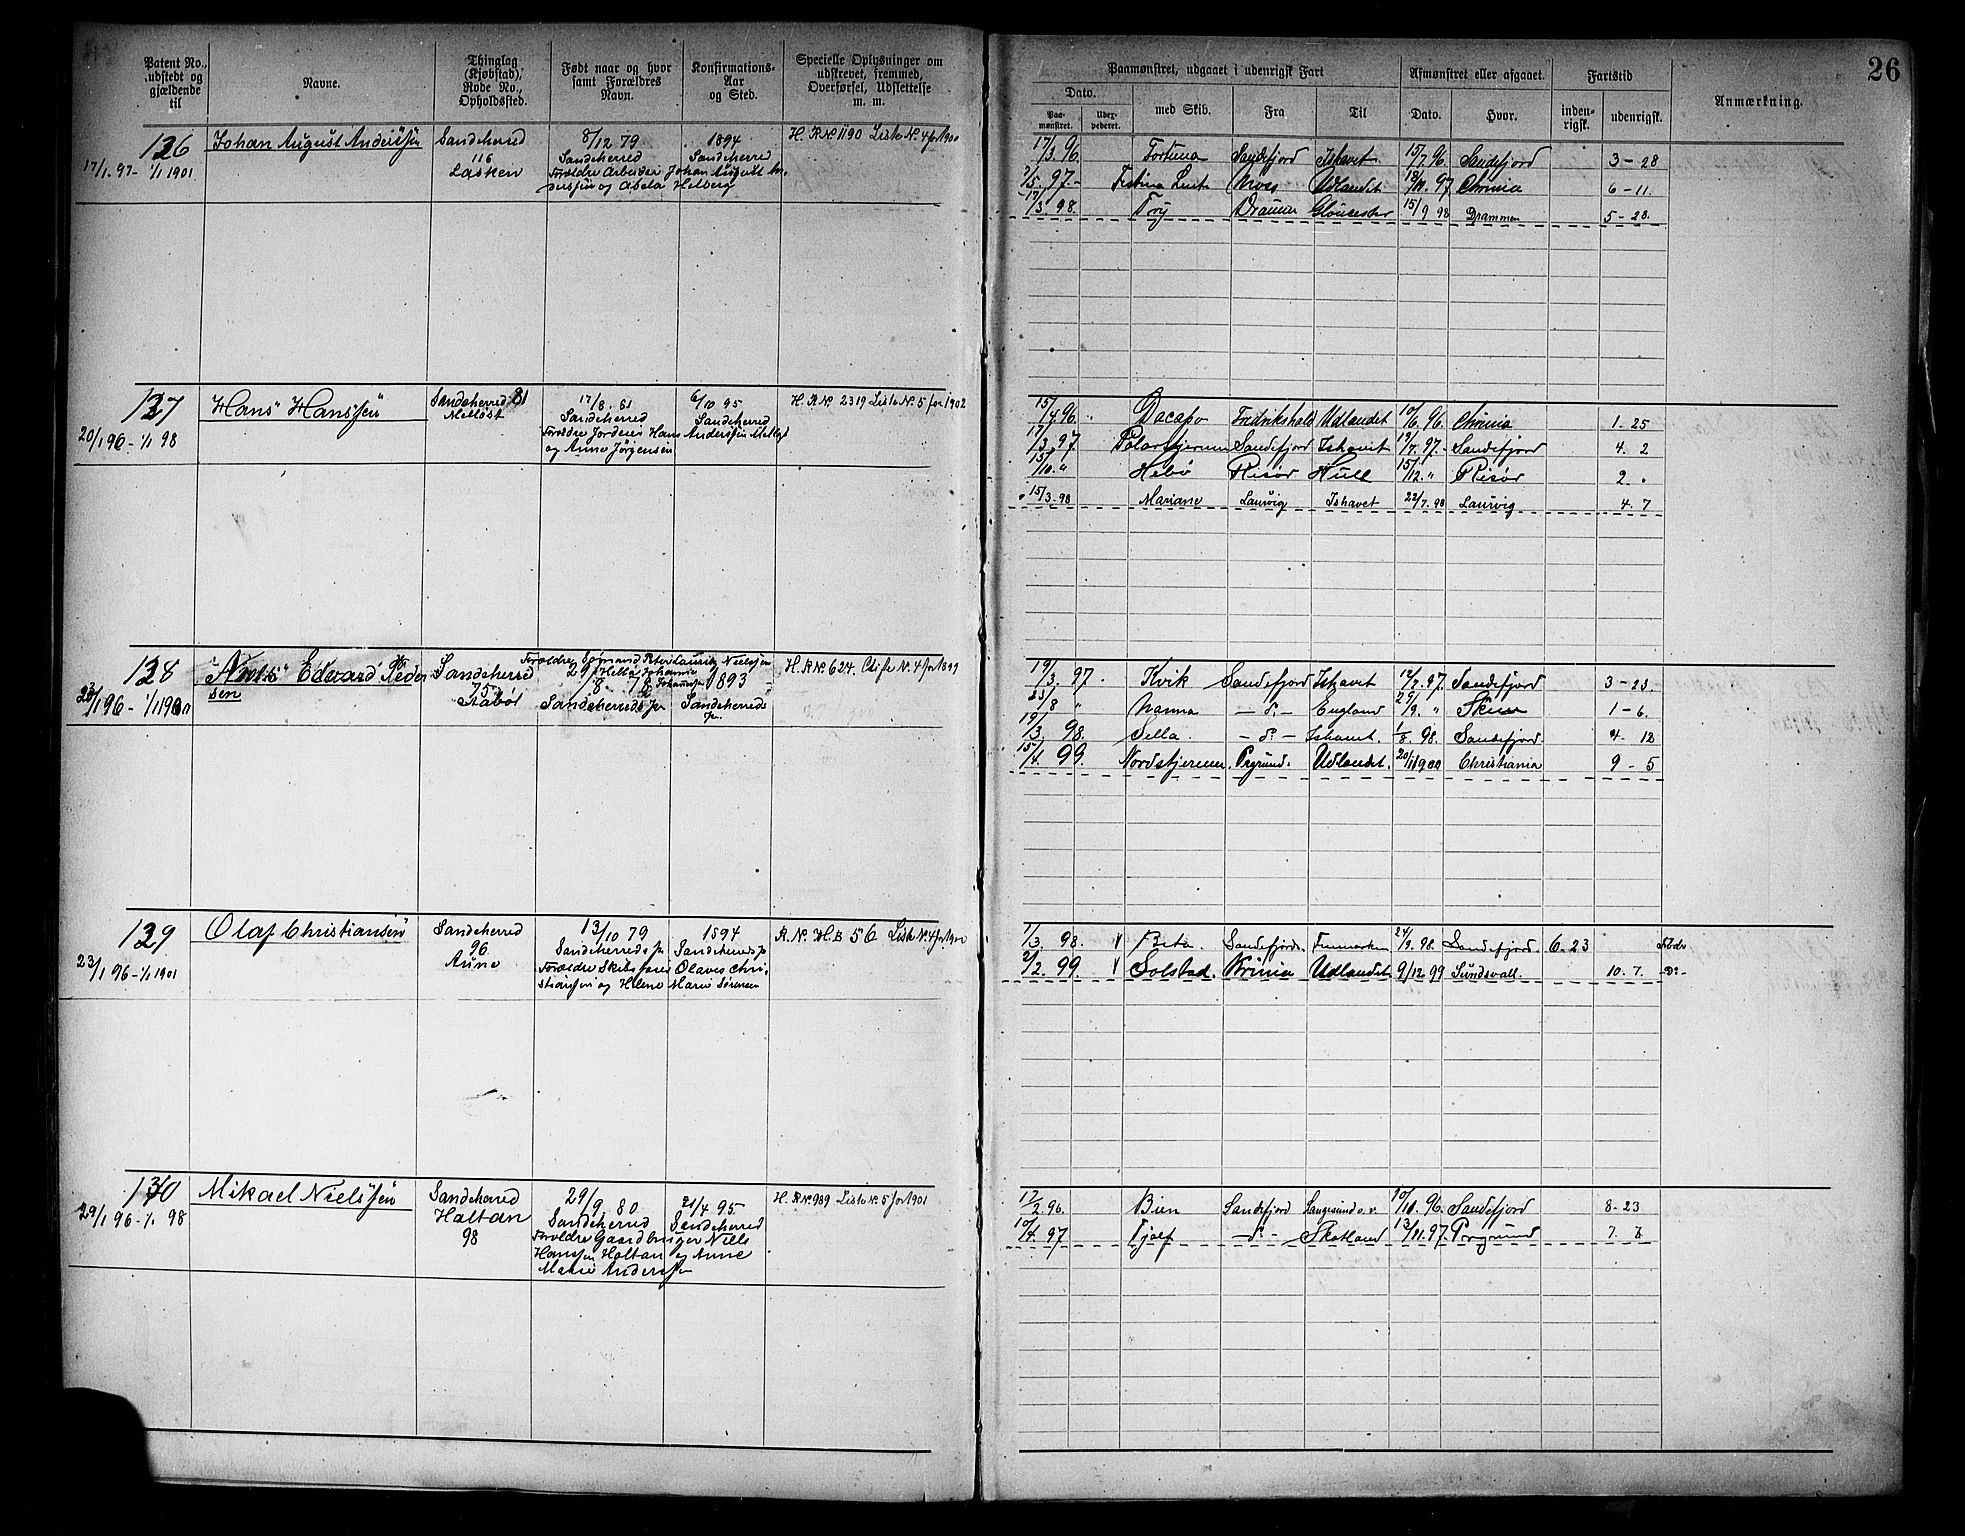 Patent No.,
udstedt og
gjældende
til
Navne.
Thinglag
(Kjøbstad),
Rode No.,
Opholdssted.
Født naar og hvor
samt Forældres
Navn.
Konfirmations-
Aar
og Sted.
Specielle Oplysninger om
udskrevet, fremmed,
Overførsel, Udslettelse
m. m.
126
17/1. 97- 1/1 1901
Johan August Anderssen
Sandeherred
116
Lasken
8/12 79
Sandeherred
Forældre Arbeider Johan August An-
derssen og Abela Helberg
1894
Sandeherred
H. R Nº 1190 Liste Nº. 4 for 1900
127
20/1 96 - 1/1 98
Hans Hanssen
Sandeherred 81
17/8. 81
Sandeherred
Forældre Jorderer Hans Anderssen
og Anne Jørgensen
6/10 95
Sandeherred
H. R Nº. 2319 Liste Nº. 5 for 1902
128
/1 96 - 1/1 1900
Edvard Peder
sen
Sandeherred
75
Stabøl
Forældre Sømand Peter Laurits Nielssen
29/8 78
Sandeherreds Pr
1893
Sandeherreds
Pr.
H. R Nº. 624. Liste Nº. 4 for 1899
129
23/1 96 - 1/1 1901
Olaf Christiansen
Sandeherred
96
13/10 79
Sandeherreds Pr
Forældre Skibstømr. Olaves Chri-
stiansen og Helene Marie Sørensen
1894
Sandeherreds Pr
R. Nº. H.B 56 Liste Nº. 4 for 1900
130
29/1 96 - 1/1 98
Mikael Nielssen
Sandeherred
Haltan
98
29/9. 80
Sandeherred
Forældre Gaardbruger Niels
Hanssen Haltan og Anne
Marie Anderssen
21/4 95
Sandeherred
H. R Nº. 989 Liste Nº. 5 for 1901
26
Paamønstret, udgaaet i udenrigsk Fart
Afmønstret eller afgaaet.
Fartstid
Anmærkning.
Dato.
Paa-
mønstret.
Uder-
pederet.
med Skib.
Fra
Til
Dato.
Hvor.
inden-
rigsk.
udenrigsk.
17/3 96. Fortuna Sandefjord Ishavet 15/7. 96. Sandefjord 3 - 28
2/5. 97. - Festina Lente Moss Udlandet 13/11 97 Chrinia 6 - 11.
17/3. 98. Tory Drammen Gloucester 15/9 98 Drammen 5 - 28.
15/4 96. Dacapo Fredrikshald Udlandet 10/6. 96. Chrinia 1 - 25
17/3. 97. Polarstjernen Sandefjord Ishavet 19/7. 97. - Sandefjord 4. 2
15/10. " Hebø Risør Hull 15/12. " Risør 2 "
15/3 - 98 Mariane Laurvig Ishavet 22/7. 98 Laurvig 4. 7
19/3. 97. Kvik Sandefjord Ishavet 12/7. 97. Sandefjord 3 - 23.
23/8 " Nanna - dº - England 29/9. " Skien 1 - 6.
19/3. 98. Sella. - dº - Ishavet. 1/8. 98. Sandefjord. 4 - 12
15/4. 99. Nordstjernen. Prgrund. Udlandet. 20/1 1900 Christiania 9 - 5
1/3. 98. Beta. Sandefjord. Finmarken 24/9. 98. Sandefjord. 6. 23
2/2. 99. Solstad. Krinia Udlandet 9/12. 99 Sundsvall. 10. 7. Dº -
17/2. 96. Bien Sandefjord Langesund o. v. 10/11. 96. Sandefjord 8 - 23
10/4. 97 Tjalf - dº - Skotland 13/11. 97. Prgrund 7.